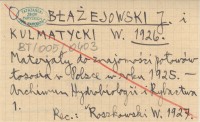 BŁAŻEJOWSKI J. i
KULMATYCKI W. 1926.
BT/009/0403
Materjały do znajomości połowów
łososia w Polsce w roku 1925. —
Archiwum Hydrobiologji i Rybactwa
1.
Rec.: Roszkowski W. 1927.